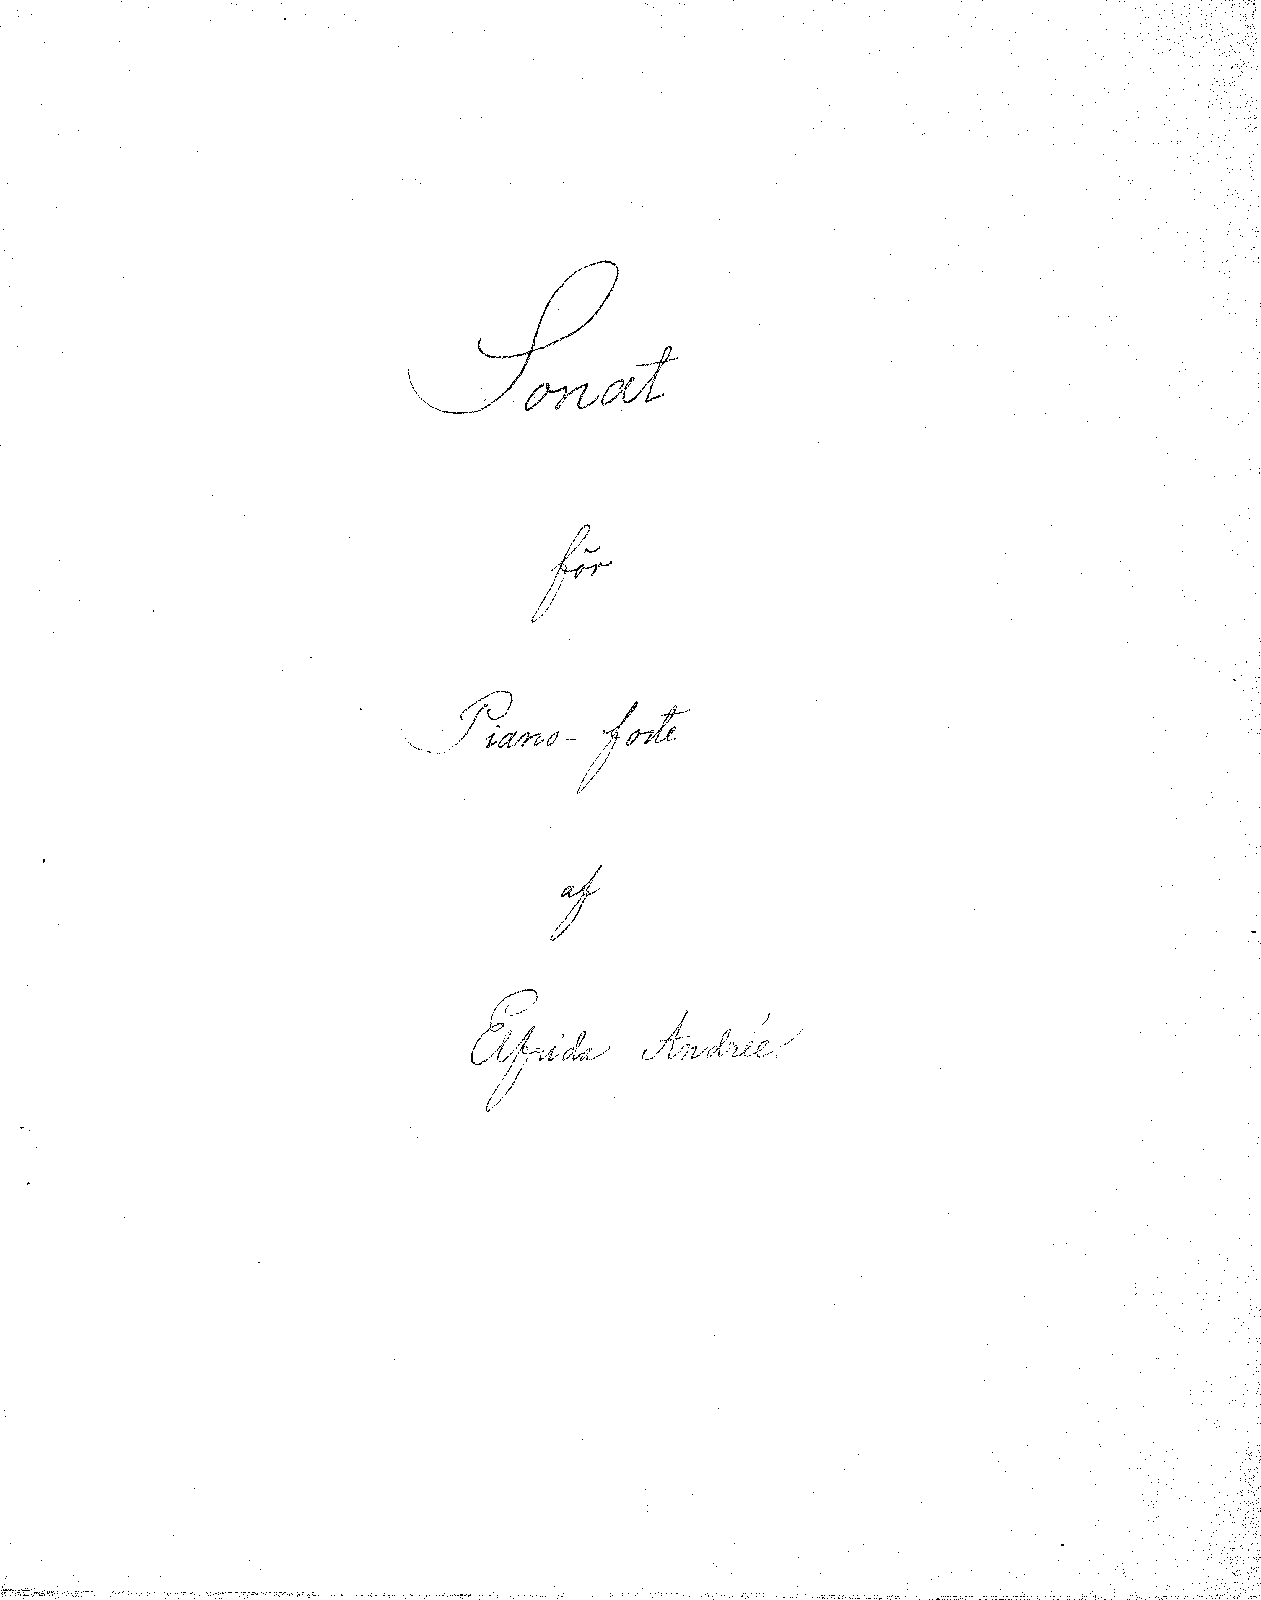 Sonat
för
Piano-forte
af
Elfrida Andrée.